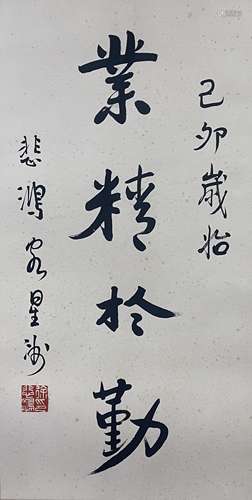 己卯歲始
業精於勤
悲鴻客星洲